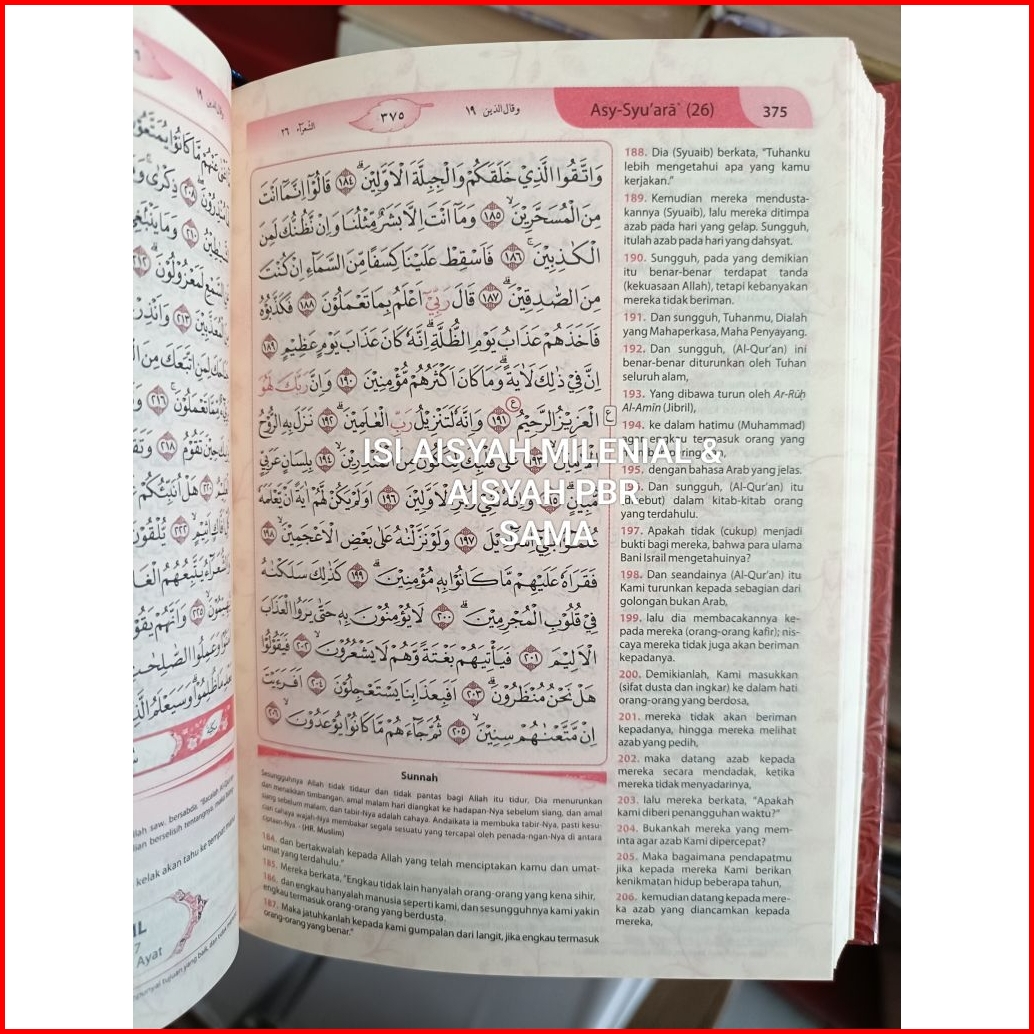 الشعراء ٢٦
٣٧٥
وقال الذين ١٩
Asy-Syu'arā` (26)
375
وَاتَّقُوا الَّذِيْ خَلَقَكُمْ وَالْجِبِلَّةَ الْاَوَّلِيْنَ ۗ ١٨٤ قَالُوْٓا اِنَّمَآ اَنْتَ
مِنَ الْمُسَحَّرِيْنَ ۙ ١٨٥ وَمَآ اَنْتَ اِلَّا بَشَرٌ مِّثْلُنَا وَاِنْ نَّظُنُّكَ لَمِنَ
الْكٰذِبِيْنَ ۚ ١٨٦ فَاَسْقِطْ عَلَيْنَا كِسَفًا مِّنَ السَّمَاۤءِ اِنْ كُنْتَ
مِنَ الصّٰدِقِيْنَ ۗ ١٨٧ قَالَ رَبِّيْٓ اَعْلَمُ بِمَا تَعْمَلُوْنَ ١٨٨ فَكَذَّبُوْهُ
فَاَخَذَهُمْ عَذَابُ يَوْمِ الظُّلَّةِ ۗ اِنَّهٗ كَانَ عَذَابَ يَوْمٍ عَظِيْمٍ ١٨٩
اِنَّ فِيْ ذٰلِكَ لَاٰيَةً ۗ وَمَا كَانَ اَكْثَرُهُمْ مُّؤْمِنِيْنَ ١٩٠ وَاِنَّ رَبَّكَ لَهُوَ
الْعَزِيْزُ الرَّحِيْمُ ١٩١ وَاِنَّهٗ لَتَنْزِيْلُ رَبِّ الْعٰلَمِيْنَ ۗ ١٩٢ نَزَلَ بِهِ الرُّوْحُ
الْاَمِيْنُ ۙ ١٩٣ عَلٰى قَلْبِكَ لِتَكُوْنَ مِنَ الْمُنْذِرِيْنَ ۙ ١٩٤ بِلِسَانٍ عَرَبِيٍّ
مُّبِيْنٍ ۗ ١٩٥ وَاِنَّهٗ لَفِيْ زُبُرِ الْاَوَّلِيْنَ ١٩٦ اَوَلَمْ يَكُنْ لَّهُمْ اٰيَةً اَنْ يَّعْلَمَهٗ
عُلَمٰۤؤُا بَنِيْٓ اِسْرَاۤءِيْلَ ١٩٧ وَلَوْ نَزَّلْنٰهُ عَلٰى بَعْضِ الْاَعْجَمِيْنَ ۙ ١٩٨
فَقَرَاَهٗ عَلَيْهِمْ مَّا كَانُوْا بِهٖ مُؤْمِنِيْنَ ۗ ١٩٩ كَذٰلِكَ سَلَكْنٰهُ
فِيْ قُلُوْبِ الْمُجْرِمِيْنَ ۗ ٢٠٠ لَا يُؤْمِنُوْنَ بِهٖ حَتّٰى يَرَوُا الْعَذَابَ
الْاَلِيْمَ ۙ ٢٠١ فَيَأْتِيَهُمْ بَغْتَةً وَّهُمْ لَا يَشْعُرُوْنَ ۙ ٢٠٢ فَيَقُوْلُوْا
هَلْ نَحْنُ مُنْظَرُوْنَ ۗ ٢٠٣ اَفَبِعَذَابِنَا يَسْتَعْجِلُوْنَ ٢٠٤ اَفَرَءَيْتَ
اِنْ مَّتَّعْنٰهُمْ سِنِيْنَ ۙ ٢٠٥ ثُمَّ جَاۤءَهُمْ مَّا كَانُوْا يُوْعَدُوْنَ ۙ ٢٠٦
ISI AISYAH MILENIAL &
AISYAH PBR
SAMA
Sunnah
Sesungguhnya Allah tidak tidaur dan tidak pantas bagi Allah itu tidur, Dia menurunkan
dan menaikkan timbangan, amal malam hari diangkat ke hadapan-Nya sebelum siang, dan amal
siang sebelum malam, dan tabir-Nya adalah cahaya. Andaikata ia membuka tabir-Nya, pasti kesu-
cian cahaya wajah-Nya membakar segala sesuatu yang tercapai oleh penada-ngan-Nya di antara
ciptaan-Nya - (HR. Muslim)
184. dan bertakwalah kepada Allah yang telah menciptakan kamu dan umat-
umat yang terdahulu."
185. Mereka berkata, "Engkau tidak lain hanyalah orang-orang yang kena sihir.
186. dan engkau hanyalah manusia seperti kami, dan sesungguhnya kami yakin
engkau termasuk orang-orang yang berdusta.
187. Maka jatuhkanlah kepada kami gumpalan dari langit, jika engkau termasuk
orang-orang yang benar."
188. Dia (Syuaib) berkata, "Tuhanku
lebih mengetahui apa yang kamu
kerjakan."
189. Kemudian mereka mendusta-
kannya (Syuaib), lalu mereka ditimpa
azab pada hari yang gelap. Sungguh,
itulah azab pada hari yang dahsyat.
190. Sungguh, pada yang demikian
itu benar-benar terdapat tanda
(kekuasaan Allah), tetapi kebanyakan
mereka tidak beriman.
191. Dan sungguh, Tuhanmu, Dialah
yang Mahaperkasa, Maha Penyayang.
192. Dan sungguh, (Al-Qur'an) ini
benar-benar diturunkan oleh Tuhan
seluruh alam,
193. Yang dibawa turun oleh Ar-Rūḥ
Al-Amīn (Jibril),
194. ke dalam hatimu (Muhammad)
engkau termasuk orang yang
195. dengan bahasa Arab yang jelas.
Dan sungguh, (Al-Qur'an) itu
dalam kitab-kitab orang
yang terdahulu.
197. Apakah tidak (cukup) menjadi
bukti bagi mereka, bahwa para ulama
Bani Israil mengetahuinya?
198. Dan seandainya (Al-Qur'an) itu
Kami turunkan kepada sebagian dari
golongan bukan Arab,
199. lalu dia membacakannya ke-
pada mereka (orang-orang kafir); nis-
caya mereka tidak juga akan beriman
kepadanya.
200. Demikianlah, Kami masukkan
(sifat dusta dan ingkar) ke dalam hati
orang-orang yang berdosa,
201. mereka tidak akan beriman
kepadanya, hingga mereka melihat
azab yang pedih,
202. maka datang azab kepada
mereka secara mendadak, ketika
mereka tidak menyadarinya,
203. lalu mereka berkata, "Apakah
kami diberi penangguhan waktu?"
204. Bukankah mereka yang mem-
inta agar azab Kami dipercepat?
205. Maka bagaimana pendapatmu
jika kepada mereka Kami berikan
kenikmatan hidup beberapa tahun,
206. kemudian datang kepada mere-
ka azab yang diancamkan kepada
mereka,